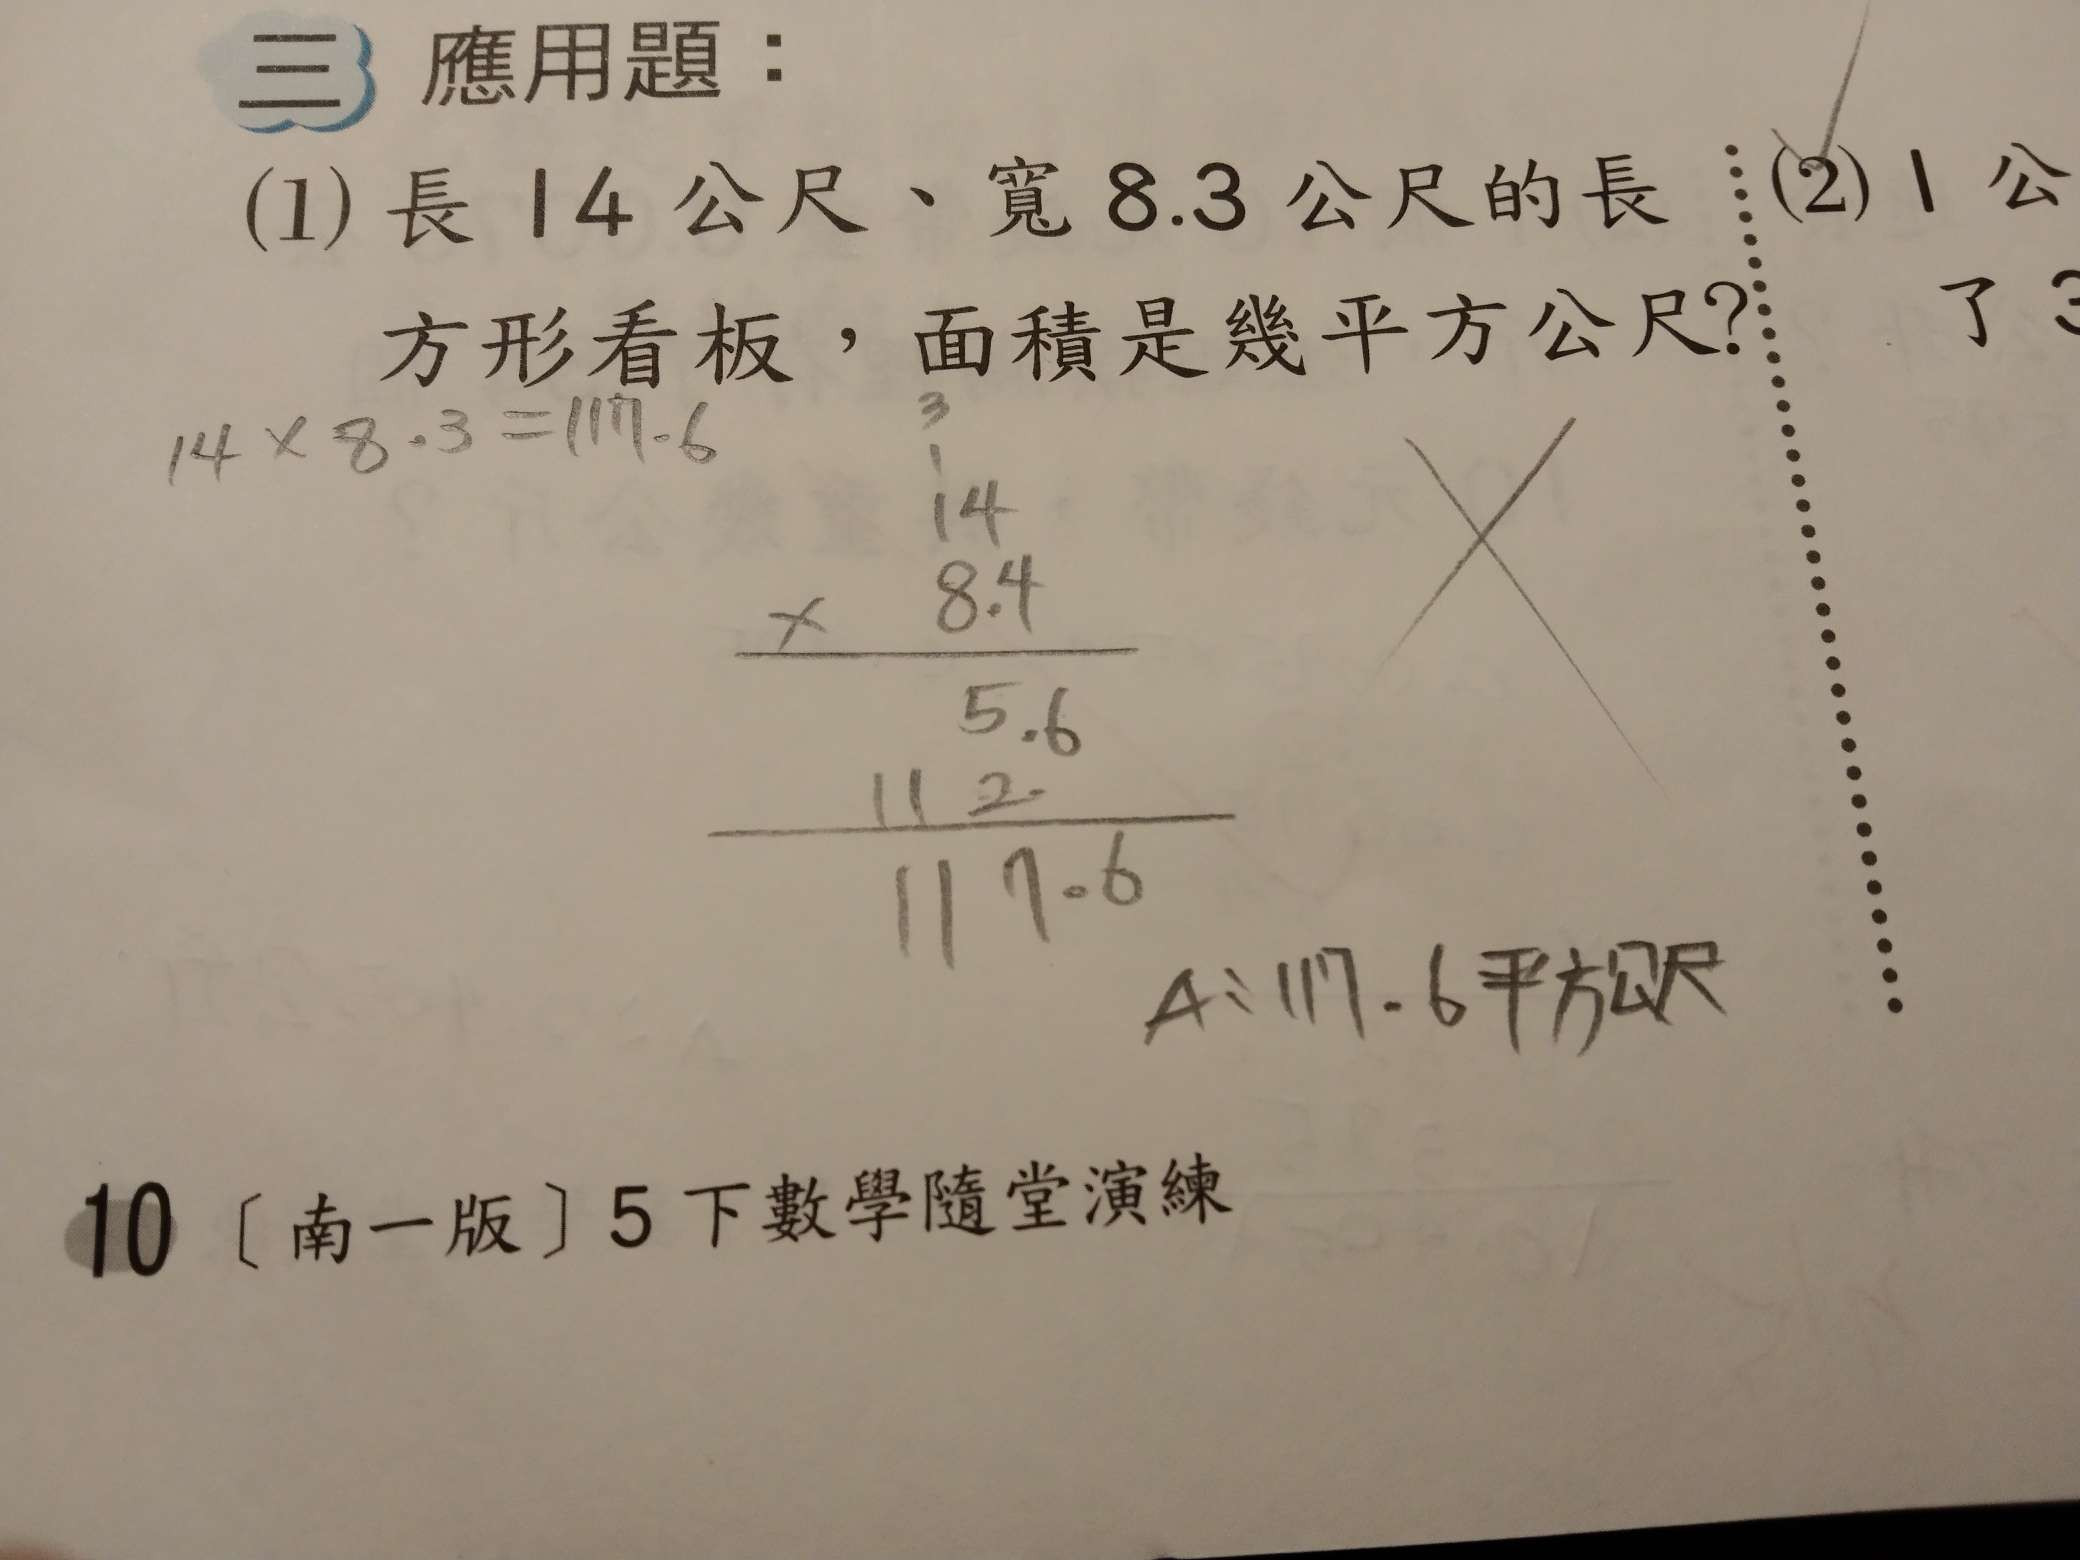 三 應用題：
(1) 長 14 公尺、寬 8.3 公尺的長
方形看板，面積是幾平方公尺?
14 × 8.3 = 117.6
3
1
14
× 8.4
5.6
112.
117.6
A：117.6平方公尺
(2) 1 公
了 3
10〔南一版〕5 下數學隨堂演練